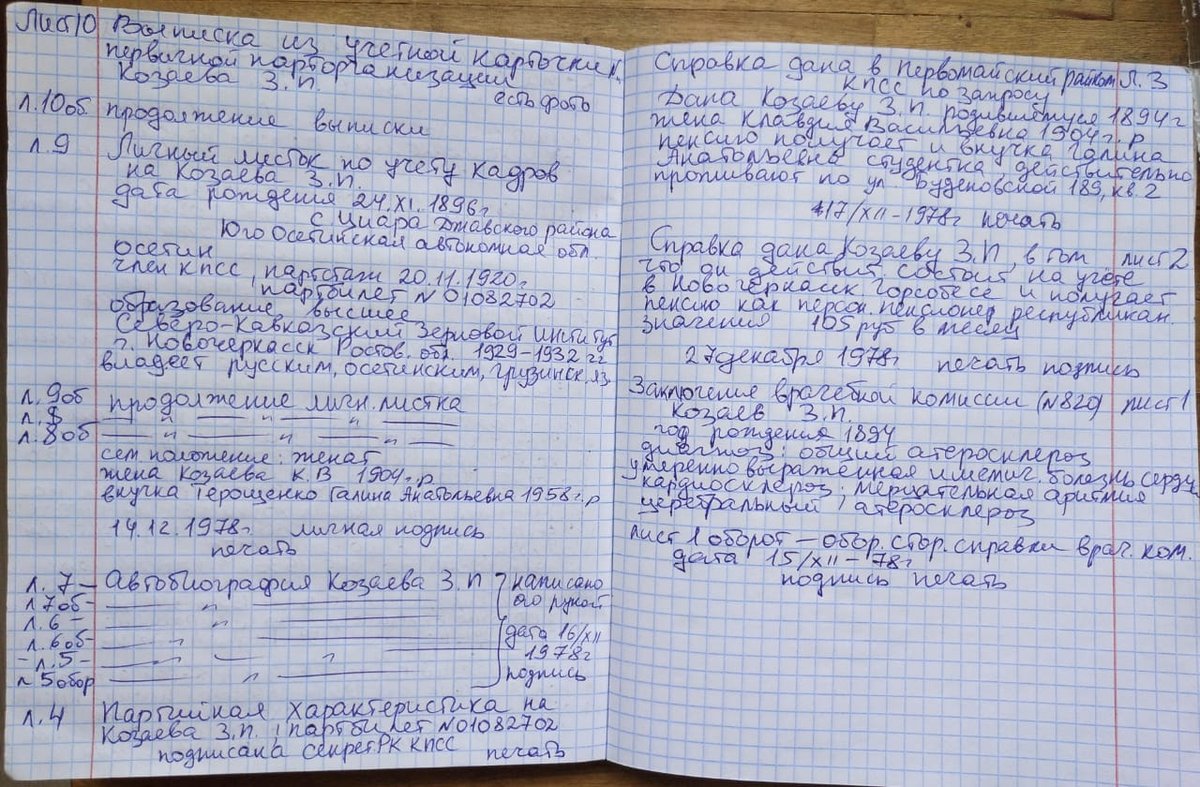 Лист10 Выписка из учетной карточки
первичной парторганизации
Козаева З.П.
есть фото
л.10об. продолжение выписки
л.9 Личный листок по учету кадров
на Козаева З.П.
дата рождения 24.XI.1896г.
с Циара Джавского района
Юго Осетинская автономная обл.
осетин
член КПСС, партстаж 20.11.1920г.
партбилет №01082702
образование высшее
Северо-Кавказский Зерновой институт
г. Новочеркасск Ростов. обл. 1929-1932 гг
владеет русским, осетинским, грузинск. яз.
л.9об продолжение личн. листка
л.8 — " — " — —
л.8об — " — " — " —
сем положение: женат
жена Козаева К.В 1904г.р
внучка Терощенко Галина Анатольевна 1958г.р
14.12.1978г. личная подпись
печать
л.7 — Автобиография Козаева З.П написано
л7об — — " — его рукой
л.6 — — " —
л.6об — — " — дата 16/XII
- л.5 - — " — 1978г
л 5обор — " — подпись
л.4 Партийная характеристика на
Козаева З.П., партбилет №01082702
подписана секрет РК КПСС печать
Справка дана в Первомайский райком Л.3
КПСС по запросу
Дана Козаеву З.П. родившемуся 1894г
жена Клавдия Васильевна 1904г.р
пенсию получает и внучка Галина
Анатольевна студентка действительно
проживают по ул Буденовской 189, кв.2
17/XII-1978г печать
Справка дана Козаеву З.П, в том лист2
что он действит. состоит на учете
в Новочеркасск горсобесе и получает
пенсию как персон. пенсионер республикан.
значения 105 руб в месяц
27декабря 1978г печать подпись
Заключение врачебной комиссии (№820) лист1
Козаев З.П.
год рождения 1894
диагноз: общий атеросклероз
умеренно выраженная ишемич. болезнь сердц
кардиосклероз, мерцательная аритмия
церебральный атеросклероз
лист 1 оборот — обор. стор. справки врач. ком.
дата 15/XII-78г
подпись печать